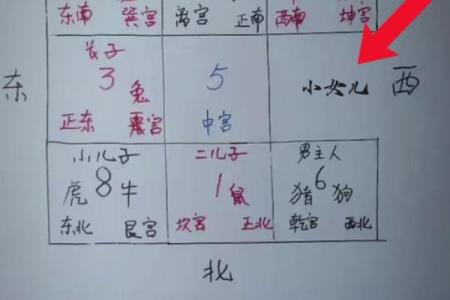 东南 巽宫 离宫 正南 西南 坤宫
长子
3 兔
正东 震宫
5
中宫
小女儿
东
西
小儿子
虎 8 牛
东北 艮宫
二儿子
1 鼠
坎宫 正北
男主人
猪 6 狗
乾宫 西北
北